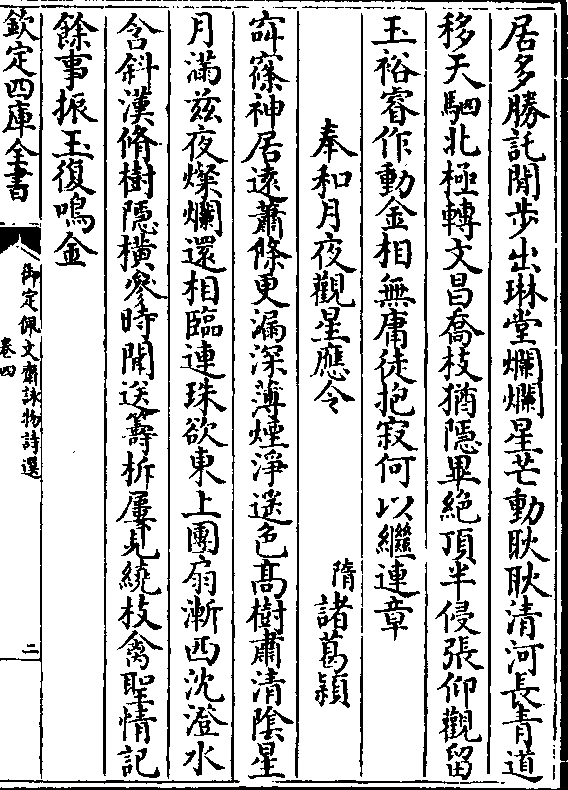 居多勝託閒步出琳堂爛爛星芒動耿耿清河長青道
移天駟北極轉文昌喬枝猶隱畢絶頂半侵張仰觀留
玉裕睿作動金相無庸徒抱寂何以繼連章
奉和月夜觀星應令
隋諸葛穎
窅窱神居遠蕭條更漏深薄煙淨遥色高樹肅清隂星
月滿兹夜燦爛還相臨連珠欲東上團扇漸西沈澄水
含斜漢脩樹隱横參時聞送籌柝屢見繞枝禽聖情記
餘事振玉復鳴金
欽定四庫全書
御定佩文齋詠物詩選
卷四
二